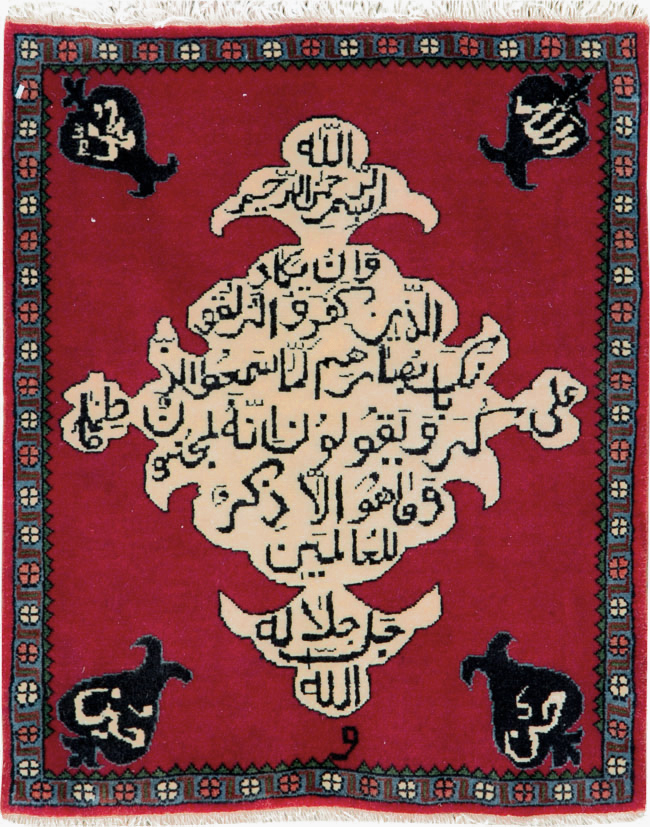 الله
الله
بسم الله الرحمن الرحیم
محمد
وان یکاد
الذین کفرو الیزلقو
نک بابصارهم لما سمعوا الذ
علی
کر و یقولون انّه لمجنون
فاطمه
وما هو الّا ذکر
للعالمین
جل جلاله
الله
حسن
حسین